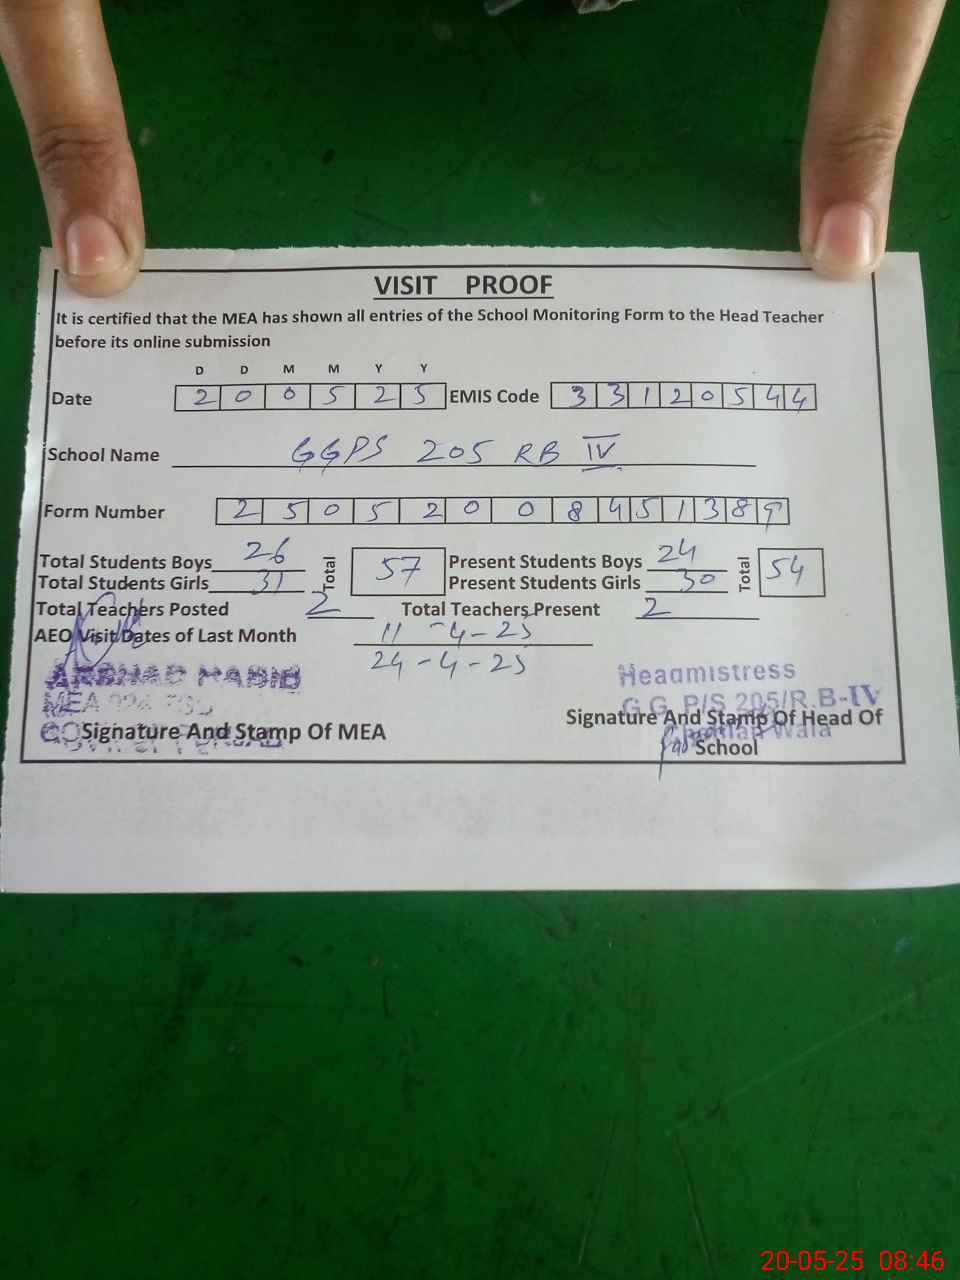 VISIT PROOF
It is certified that the MEA has shown all entries of the School Monitoring Form to the Head Teacher
before its online submission
D D M M Y Y
Date 2 0 0 5 2 5 EMIS Code 3 3 1 2 0 5 4 4
School Name GGPS 205 RB IV
Form Number 2 5 0 5 2 0 0 8 4 5 1 3 8 9
Total Students Boys 26 Total 57 Present Students Boys 24 Total 54
Total Students Girls 31 Present Students Girls 30
Total Teachers Posted 2 Total Teachers Present 2
AEO Visit Dates of Last Month 11-4-25
24-4-25
ARSHAD HABIB
MEA
Headmistress
G.G. P/S 205/R.B-IV
Wala
Signature And Stamp Of MEA
Signature And Stamp Of Head Of
School
20-05-25 08:46